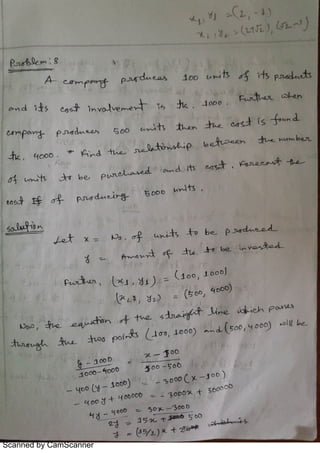 x₁, y₁ = (2, -1)
x₂, y₂ =
Problem: 8
A company produces 100 units of its products
and its cost involvement is tk. 1000. Further when
company produces 500 units then the cost is found
tk. 4000. Find the relationship between the number
of units to be purchased and its cost. Forecast the
cost If of producing 5000 units.
Solution
Let x = No. of units to be produced
y = Amount of tk. to be invested
Further, (x₁, y₁) = (100, 1000)
(x₂, y₂) = (500, 4000)
Now, the equation of the straight line which passes
through the two points (100, 1000) and (500, 4000) will be
y - 1000 / 1000 - 4000 = x - 100 / 100 - 500
- 400 (y - 1000) = - 3000 (x - 100)
- 400 y + 400000 = - 3000x + 300000
4y - 4000 = 30x - 3000
2y = 15x + 500
y = (15/2)x +
Scanned by CamScanner